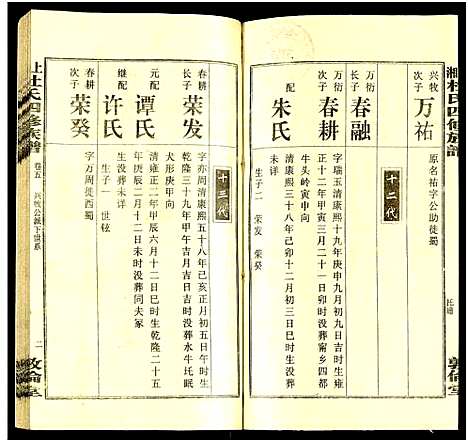 杜氏四修族譜
兴牧
次子
万祐
原名祐字公助徒蜀
十二代
万衍
长子
春融
万衍
次子
春耕
字瑞玉清康熙三十九年庚申九月初十日戌时生雍
正十二年甲寅三月二十一日卯时没葬甯乡四都
牛头岭寅申向
配
朱氏
清康熙四十二年癸未二月初五日卯时生
卯十二月初三日
未详
生子二 荣发 荣癸
敦倫堂
上杜氏四修族譜
卷五 兴牧公派下世系
二
敦倫堂
十三代
春耕
长子
荣发
字亦周清康熙五十八年己亥正月初五日午时生
乾隆三十九年甲午吉月吉日吉时没葬水牛坻眠
犬形庚甲向
元配
谭氏
清雍正二年甲辰六月十二日巳时生乾隆二十五
年庚辰二月十二日未时没葬同夫冢
继配
许氏
生没葬未详
生子一 世铉
春耕
次子
荣癸
字万周徒西蜀